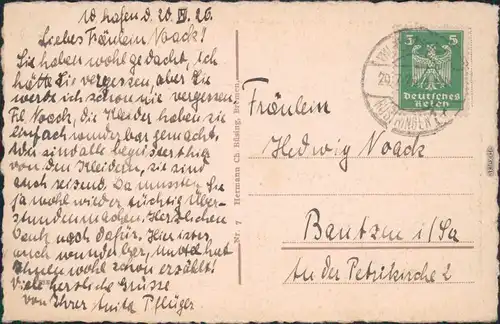 W'hafen d. 20. IV. 26.
Liebes Fräulein Noack!
Sie haben wohl gedacht, ich
hätte Sie vergessen, aber Sie
werde ich schon nie vergessen
Frl Noack, die Kleider haben sie
einfach wunderbar gemacht.
Wir sind alle begeistert hier
von den Kleidern, sie sind
auch reizend. Da mussten Sie
ja wohl wieder tüchtig Über-
stunden machen. Herzlichen
Dank noch dafür. Hier ist es
auch wunderbar, Mutter hat
Ihnen wohl schon erzählt!
Viele herzliche Grüsse
von Ihrer Anita Pflüger.
Nr. 7 Hermann Ch. Büsing, Bremen
5 5
Deutsches
Reich
RÜSTRINGEN
Fräulein
Hedwig Noack
Bautzen i/Sa
An der Petrikirche 2